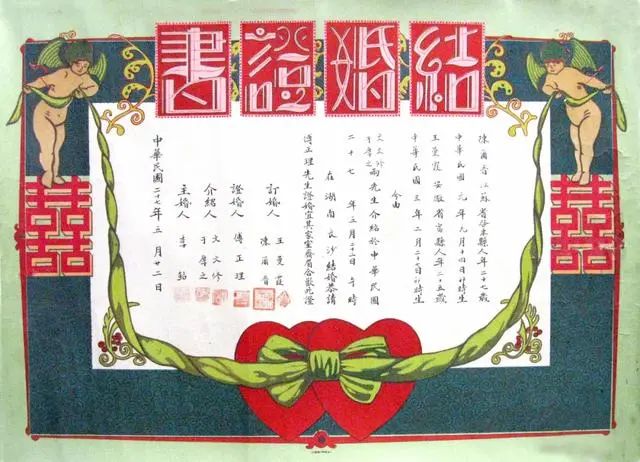 結婚證書
陳爾晋江蘇省啓東縣人年二十七歲
中華民國元年九月十四日卯時生
王蔓菲安徽省當縣人年二十五歲
中華民國三年二月二十日卯時生
今由
文文修
于厚之
兩先生介紹於中華民國
二十七年五月二十二日午時
在湖南長沙結婚恭請
傅正理先生證婚宜其家室爰眉合歡此證
訂婚人 王蔓
陳爾晋
證婚人 傅正理
介紹人 文文修
于厚之
主婚人 李
中華民國二十七年五月廿二日